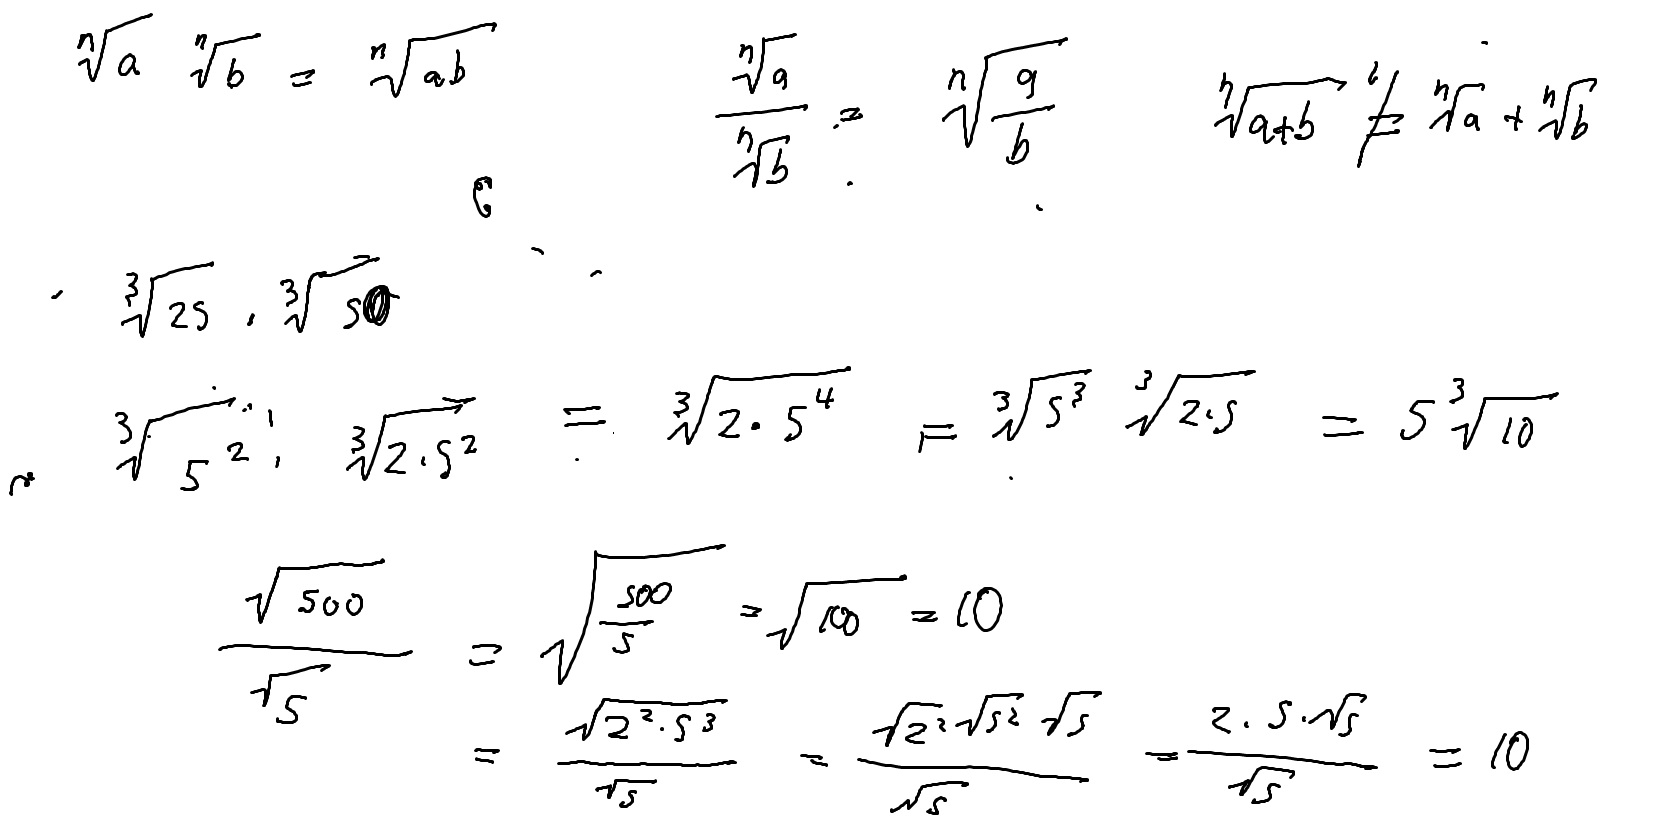 ⁿ√a ⁿ√b = ⁿ√ab    ⁿ√a / ⁿ√b = ⁿ√(a/b)    ⁿ√(a+b) ≠ ⁿ√a + ⁿ√b
³√25 · ³√50
³√5² · ³√(2·5²) = ³√(2·5⁴) = ³√5³ ³√(2·5) = 5 ³√10
√500 / √5 = √(500/5) = √100 = 10
= √(2²·5³) / √5 = √2² √5² √5 / √5 = 2·5·√5 / √5 = 10